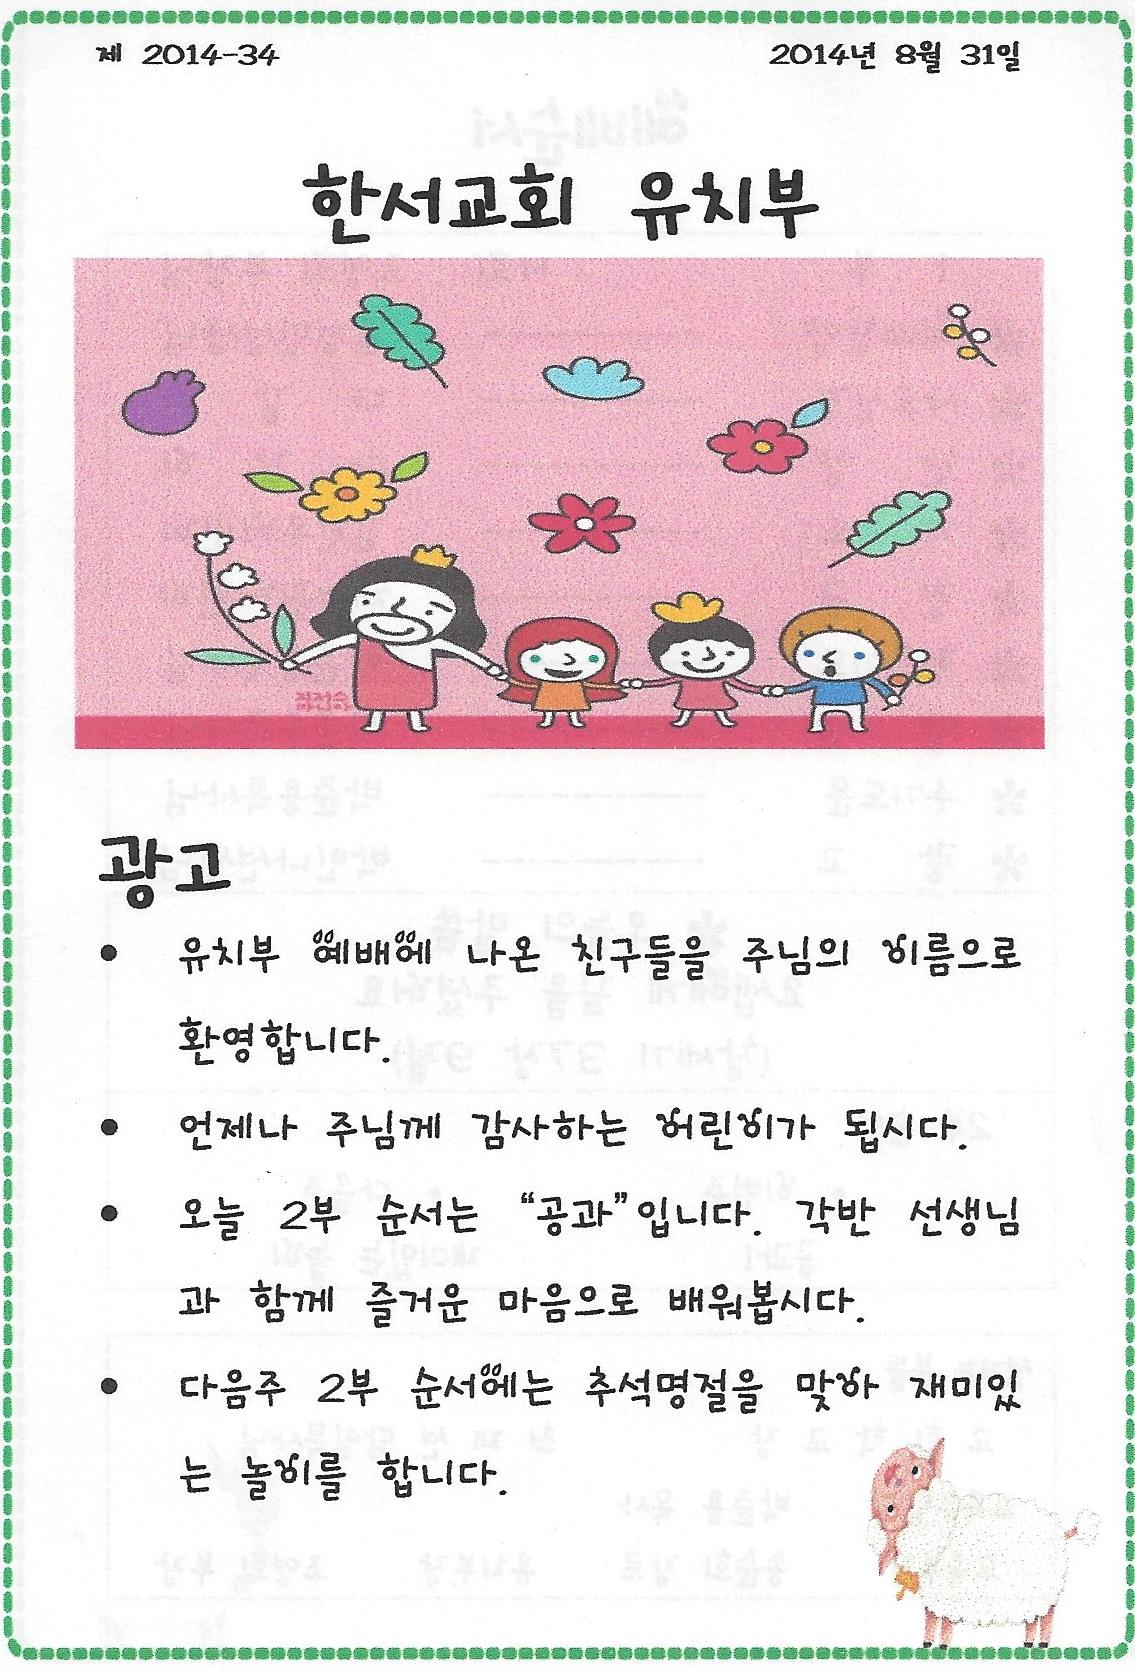 제 2014-34
2014년 8월 31일
한서교회 유치부
광고
• 유치부 예배에 나온 친구들을 주님의 이름으로
환영합니다.
• 언제나 주님께 감사하는 어린이가 됩시다.
• 오늘 2부 순서는 “공과”입니다. 각반 선생님
과 함께 즐거운 마음으로 배워봅시다.
• 다음주 2부 순서에는 추석명절을 맞아 재미있
는 놀이를 합니다.